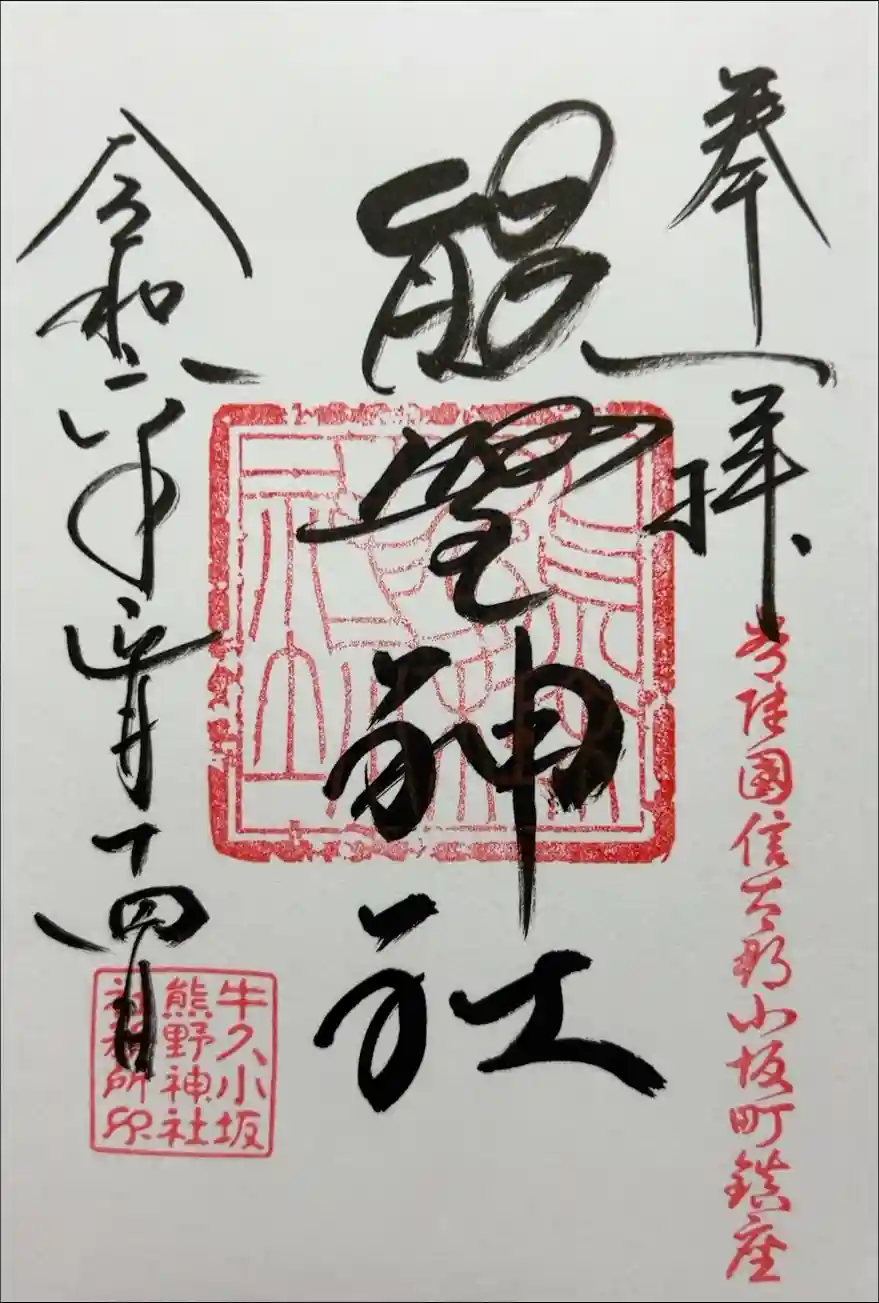 奉拝
常陸國信太郡小坂町鎮座
熊野神社
令和六年正月十四日
牛久小坂
熊野神社
社務所印